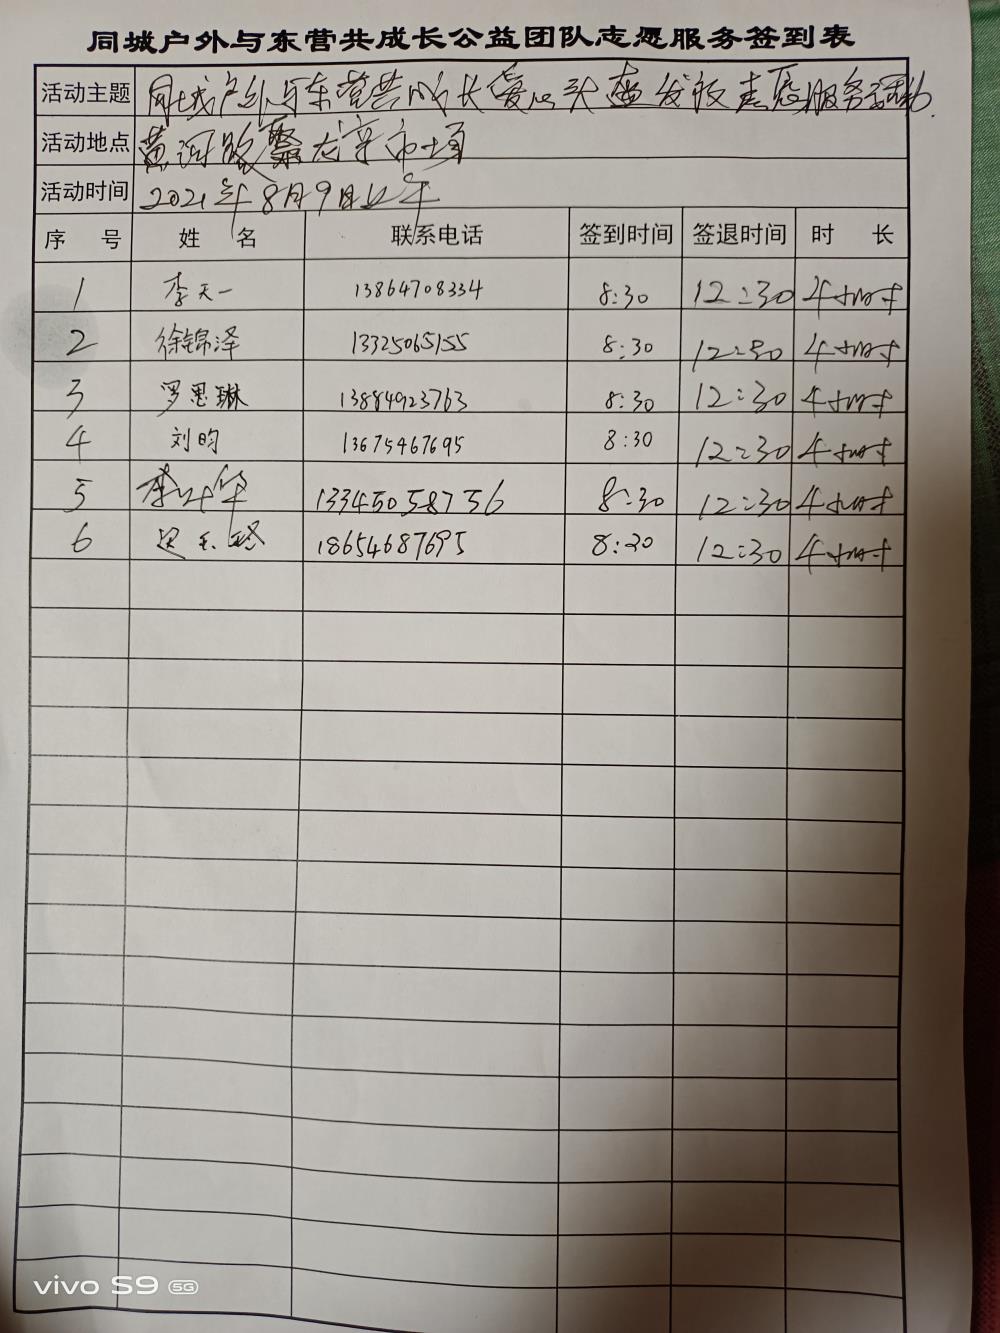 同城户外与东营共成长公益团队志愿服务签到表
活动主题 同城户外与东营共成长爱心头盔发放志愿服务活动.
活动地点 黄河路聚龙亭市场
活动时间 2021年8月9日上午
序 号 姓 名 联系电话 签到时间 签退时间 时 长
1 李天一 13864708334 8:30 12:30 4小时
2 徐锦泽 13325065155 8:30 12:30 4小时
3 罗思琳 13884923763 8:30 12:30 4小时
4 刘昀 13675467695 8:30 12:30 4小时
5 李 华 13345058756 8:30 12:30 4小时
6 18654687695 8:30 12:30 4小时
vivo S9 5G